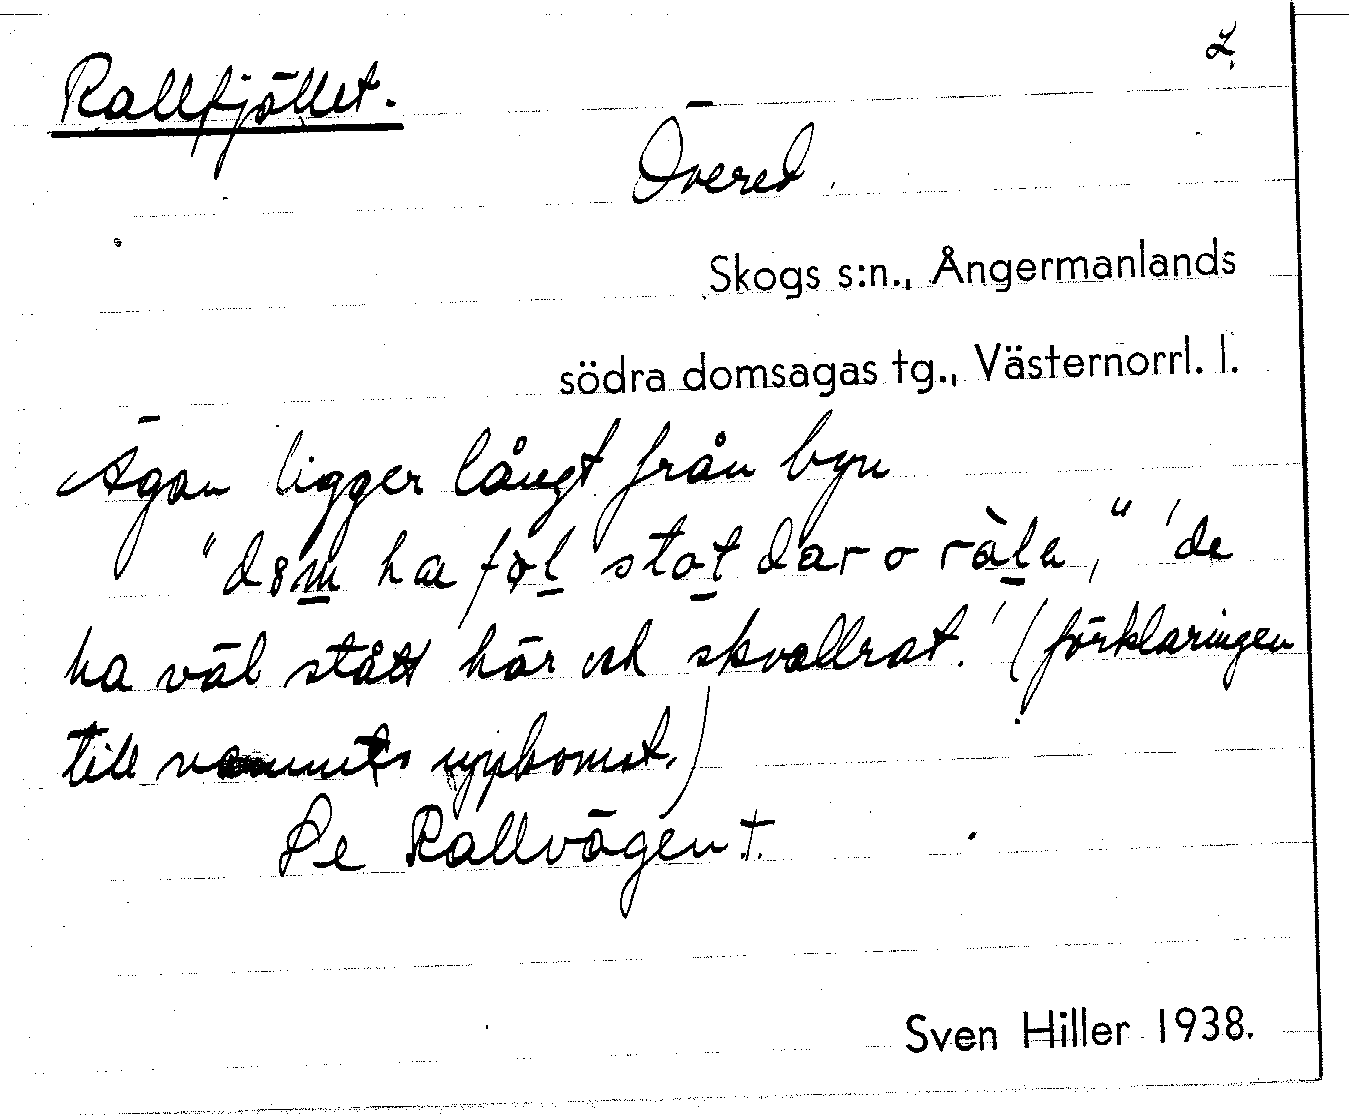 2.
Rallfjället.
Övered
Skogs s:n., Ångermanlands
södra domsagas tg., Västernorrl. l.
Ägan ligger långt från byn
"dem ha föl stat dar o rala," 'de
ha väl stått här och skvallrat.' (förklaringen
till namnets uppkomst.)
Se Rallvägen †.
Sven Hiller 1938.